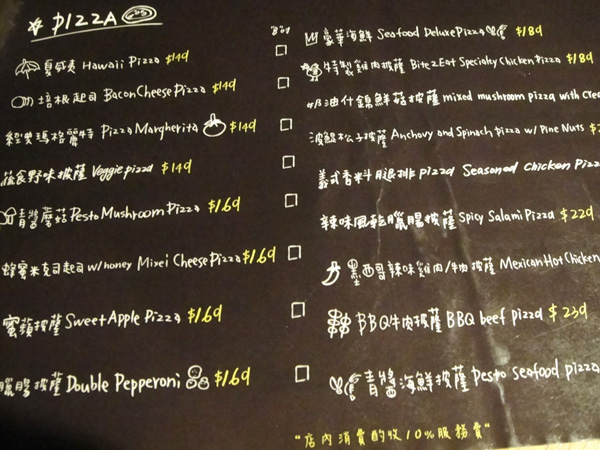 PIZZA
夏威夷 Hawaii Pizza $149
培根起司 Bacon Cheese Pizza $149
經典瑪格麗特 Pizza Margherita $149
蔬食野味披薩 Veggie pizza $149
青醬蘑菇 Pesto Mushroom Pizza $169
蜂蜜米克司起司 w/honey Mixei Cheese Pizza $169
蜜蘋披薩 Sweet Apple Pizza $169
臘腸披薩 Double Pepperoni $169
8吋
豪華海鮮 Seafood Deluxe Pizza $189
特製雞肉披薩 Bite2Eat Specialty Chicken Pizza $189
奶油什錦鮮菇披薩 mixed mushroom pizza with
波鯷松子披薩 Anchovy and Spinach pizza w/ Pine Nuts
義式香料腿排 pizza Seasoned Chicken Pizza
辣味風乾臘腸披薩 Spicy Salami Pizza $229
墨西哥辣味雞肉/牛肉披薩 Mexican Hot Chicken
BBQ牛肉披薩 BBQ beef pizza $239
青醬海鮮披薩 Pesto seafood pizza
"店內消費酌收10%服務費"